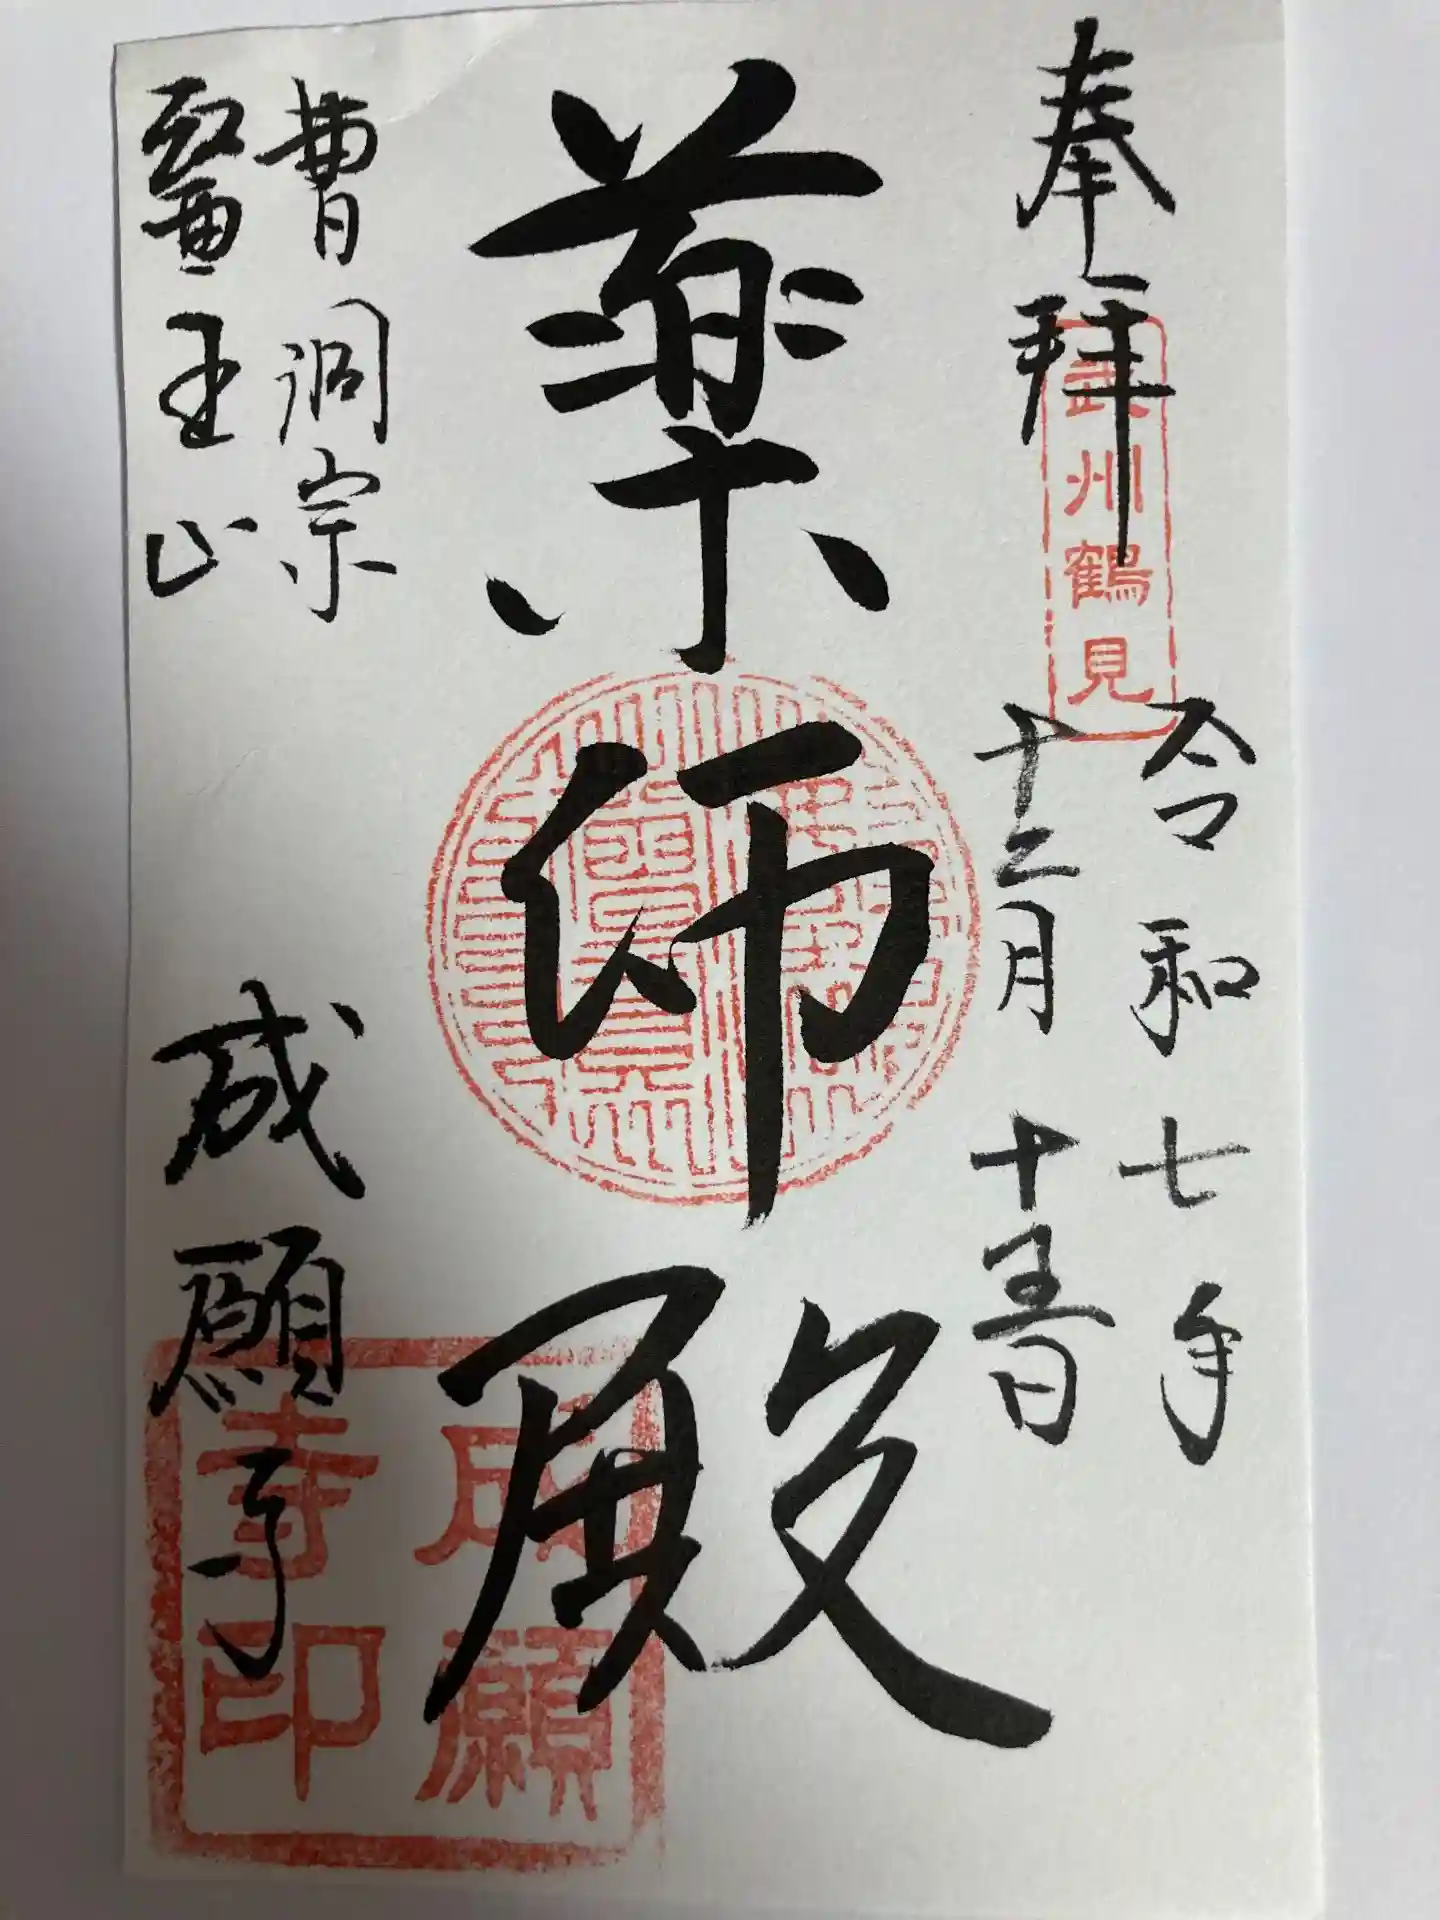 奉拝
武州鶴見
令和七年
十二月十五日
薬師殿
曹洞宗
醫王山
成願寺
成願寺印